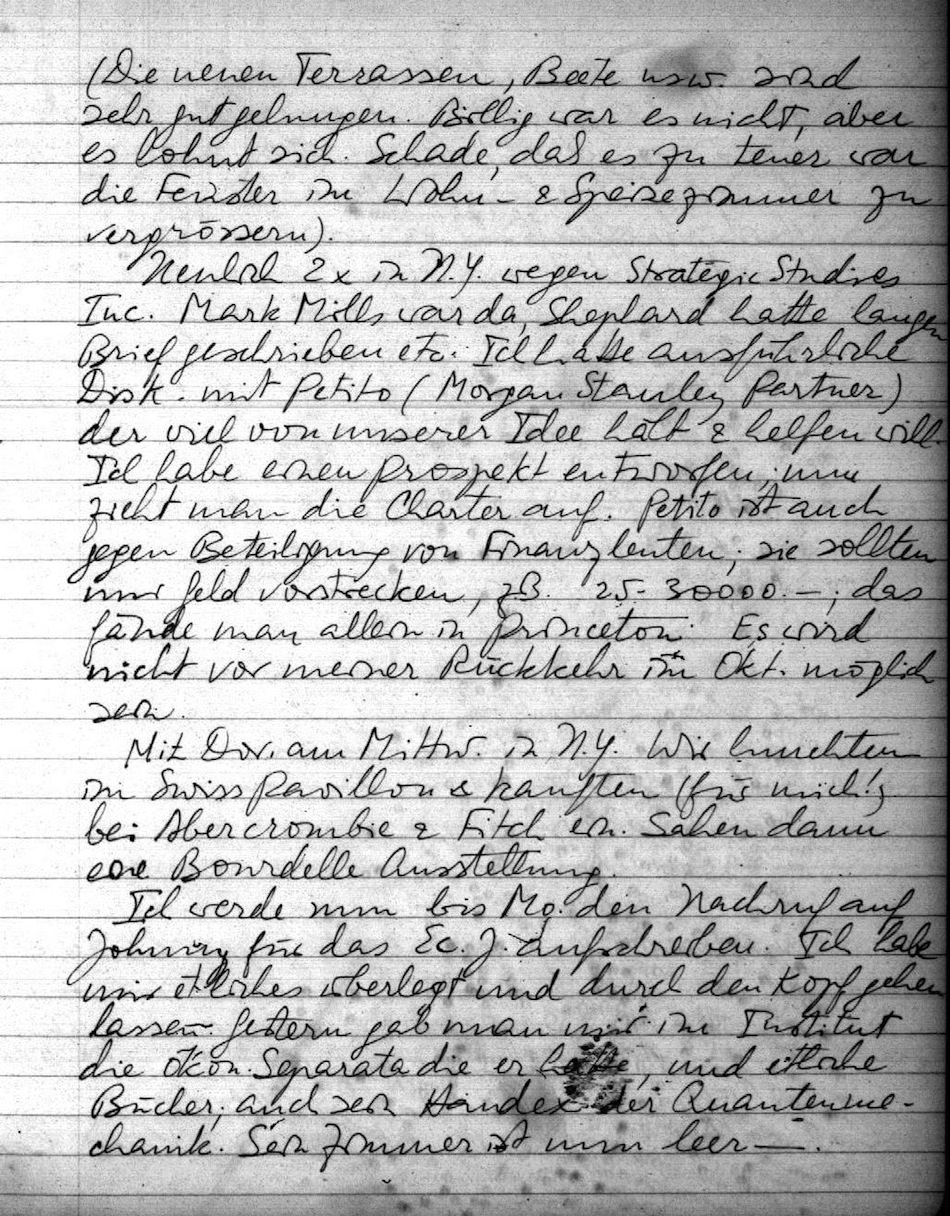 (Die neuen Terrassen, Beete usw. sind
sehr gut gelungen. Billig war es nicht, aber
es lohnt sich. Schade, daß es zu teuer war
die Fenster im Wohn- & Speisezimmer zu
vergrössern).
Neulich 2x in N.Y. wegen Strategic Studies
Inc. Mark Mills war da, Shephard hatte langen
Brief geschrieben etc. Ich hatte ausführliche
Disk. mit Petito (Morgan Stanley Partner)
der viel von unserer Idee hält & helfen will.
Ich habe einen Prospekt entworfen; nun
zieht man die Charter auf. Petito ist auch
gegen Beteiligung von Finanzleuten; sie sollten
nur Geld vorstrecken, zB. 25-30000.–; das
fände man allein in Princeton. Es wird
nicht vor meiner Rückkehr im Okt. möglich
sein.
Mit Dor. am Mittw. in N.Y. Wir lunchten
im Swiss Pavillon & kauften (für mich!)
bei Abercrombie & Fitch ein. Sahen dann
eine Bourdelle Ausstellung.
Ich werde nun bis Mo. den Nachruf auf
Johnny für das Ec. J. aufschreiben. Ich habe
mir etliches überlegt und durch den Kopf gehen
lassen. Gestern gab man mir im Institut
die ökon. Separata die er hatte, und etliche
Bücher; auch sein Handex. der Quantenme-
chanik. Sein Zimmer ist nun leer —.